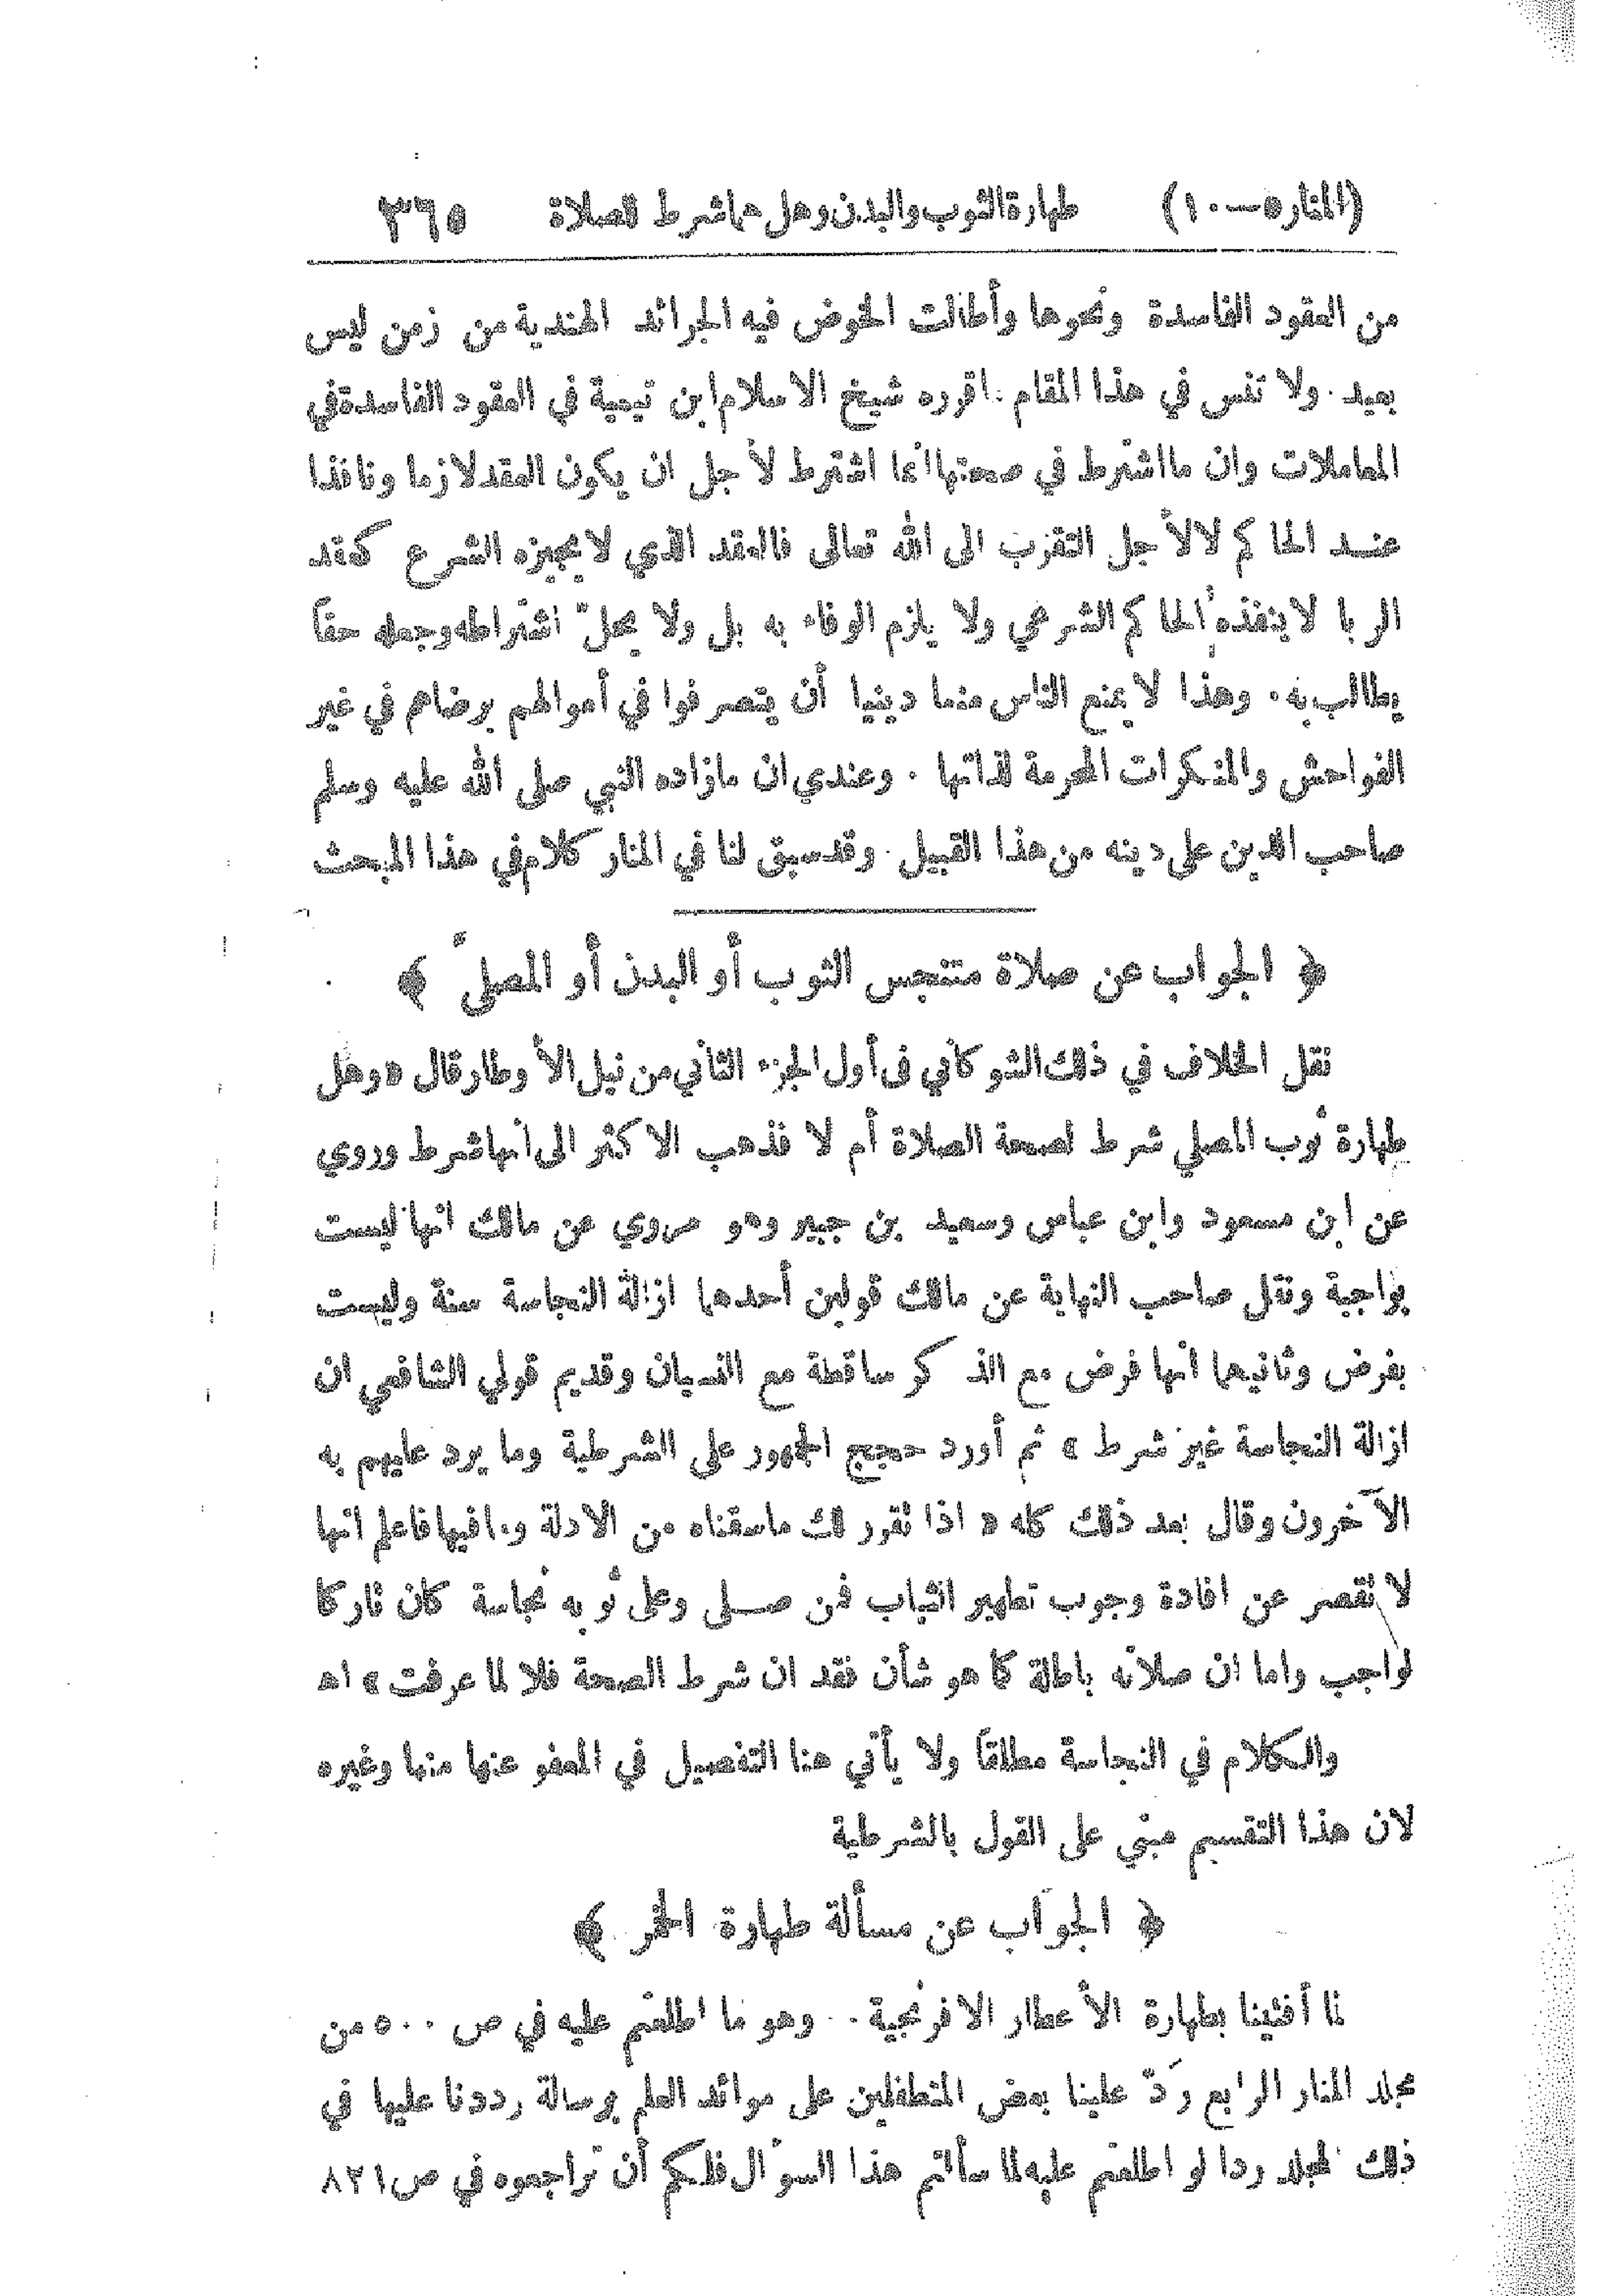 (المنار ٥ — ١٠) طهارة الثوب والبدن وهل هما شرط للصلاة ٣٦٥
من العقود الفاسدة ونحوها وأطالت الخوض فيه الجرائد الهندية من زمن ليس
بعيد. ولا تنس في هذا المقام ما قرره شيخ الاسلام ابن تيمية في العقود الفاسدة في
المعاملات وان ما اشترط في صحتها انما اشترط لأجل ان يكون العقد لازما ونافذا
عند الحاكم لا لأجل التقرب الى الله تعالى فالعقد الذي لا يجيزه الشرع كعقد
الربا لا ينفذه الحاكم الشرعي ولا يلزم الوفاء به بل ولا يحلّ اشتراطه وجعله حقاً
يطالب به. وهذا لا يمنع الناس منعا دينيا أن يتصرفوا في أموالهم برضاهم في غير
الفواحش والمنكرات المحرمة لذاتها. وعندي ان ما زاده النبي صلى الله عليه وسلم
صاحب الدين على دينه من هذا القبيل. وقد سبق لنا في المنار كلام في هذا المبحث
﴿ الجواب عن صلاة متنجس الثوب أو البدن أو المصلىّ ﴾
نقل الخلاف في ذلك الشوكاني فى أول الجزء الثاني من نيل الأوطار قال « وهل
طهارة ثوب المصلي شرط لصحة الصلاة أم لا فذهب الاكثر الى أنها شرط وروي
عن ابن مسعود وابن عباس وسعيد بن جبير وهو مروي عن مالك انها ليست
بواجبة ونقل صاحب النهاية عن مالك قولين أحدهما ازالة النجاسة سنة وليست
بفرض وثانيهما انها فرض مع الذكر ساقطة مع النسيان وقديم قولي الشافعي ان
ازالة النجاسة غير شرط » ثم أورد حجج الجمهور على الشرطية وما يرد عليهم به
الآخرون وقال بعد ذلك كله « اذا تقرر لك ماسقناه من الادلة وما فيها فاعلم انها
لا تقصر عن افادة وجوب تطهير الثياب فمن صلى وعلى ثوبه نجاسة كان تاركا
لواجب واما ان صلاته باطلة كما هو شأن فقدان شرط الصحة فلا لما عرفت » اه
والكلام في النجاسة مطلقاً ولا يأتي هنا التفصيل في المعفو عنها منها وغيره
لان هذا التقسيم مبني على القول بالشرطية
﴿ الجواب عن مسألة طهارة الخمر ﴾
لما أفتينا بطهارة الأعطار الافرنجية. وهو ما اطلعتم عليه في ص ٥٠٠ من
مجلد المنار الرابع ردّ علينا بعض المتطفلين على موائد العلم برسالة رددنا عليها في
ذلك المجلد ردا لو اطلعتم عليه لما سألتم هذا السؤال فلكم أن تراجعوه في ص ٨٢١